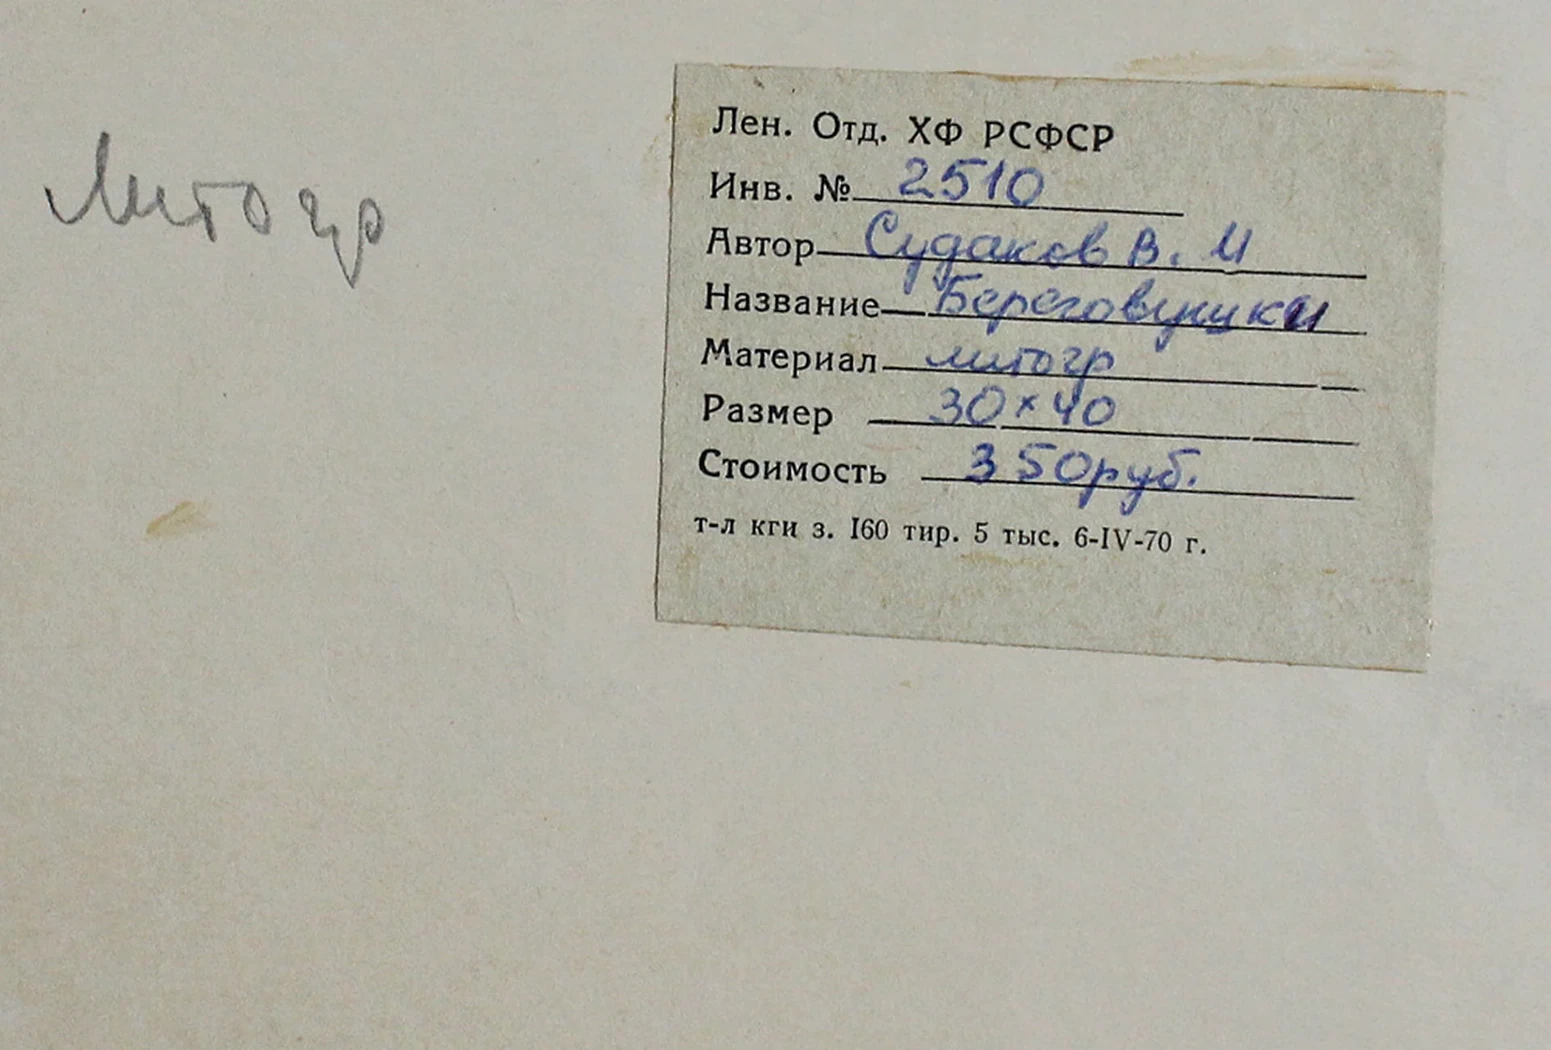 Литогр
Лен. Отд. ХФ РСФСР
Инв. № 2510
Автор Судаков В. И
Название Береговушки
Материал литогр
Размер 30×40
Стоимость 350руб.
т-л кги з. I60 тир. 5 тыс. 6-IV-70 г.